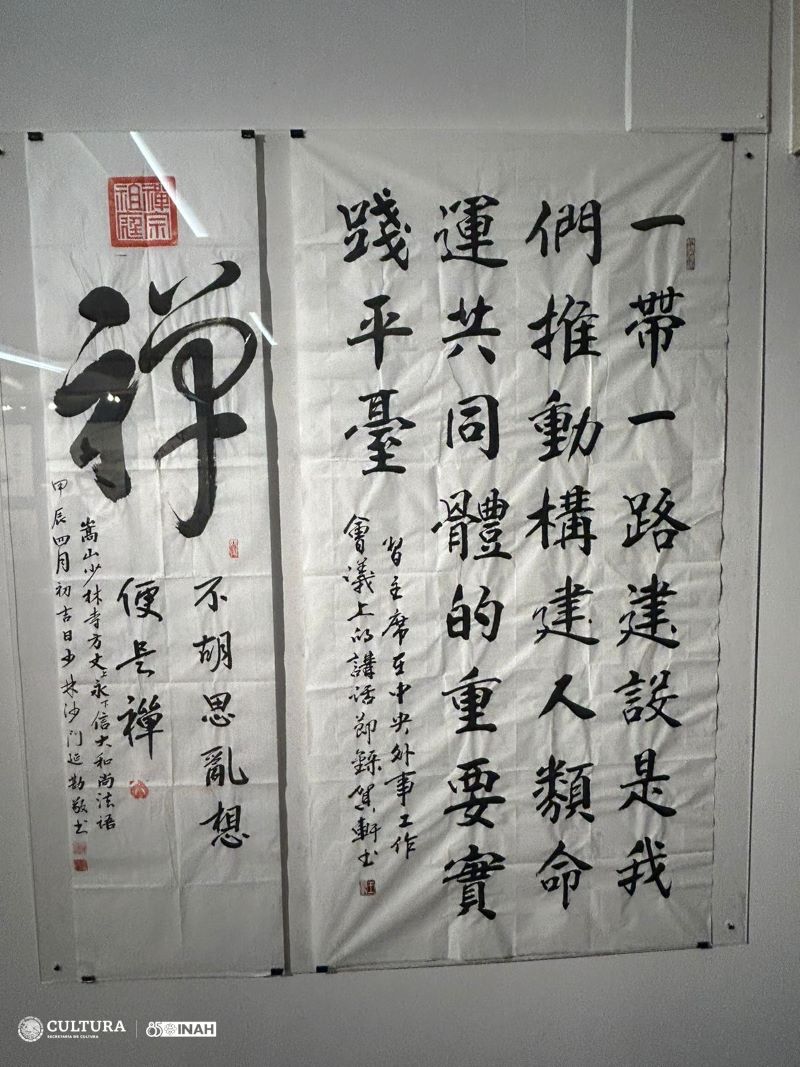 一帶一路建設是我
們推動構建人類命
運共同體的重要實
踐平臺
習主席在中央外事工作
會議上的講話節錄賀軒书
禪宗
祖庭
禪
不胡思亂想
便是禪
嵩山少林寺方丈上永下信大和尚法語
甲辰四月初吉日少林沙门延勃敬书
CULTURA
SECRETARÍA DE CULTURA
85 INAH